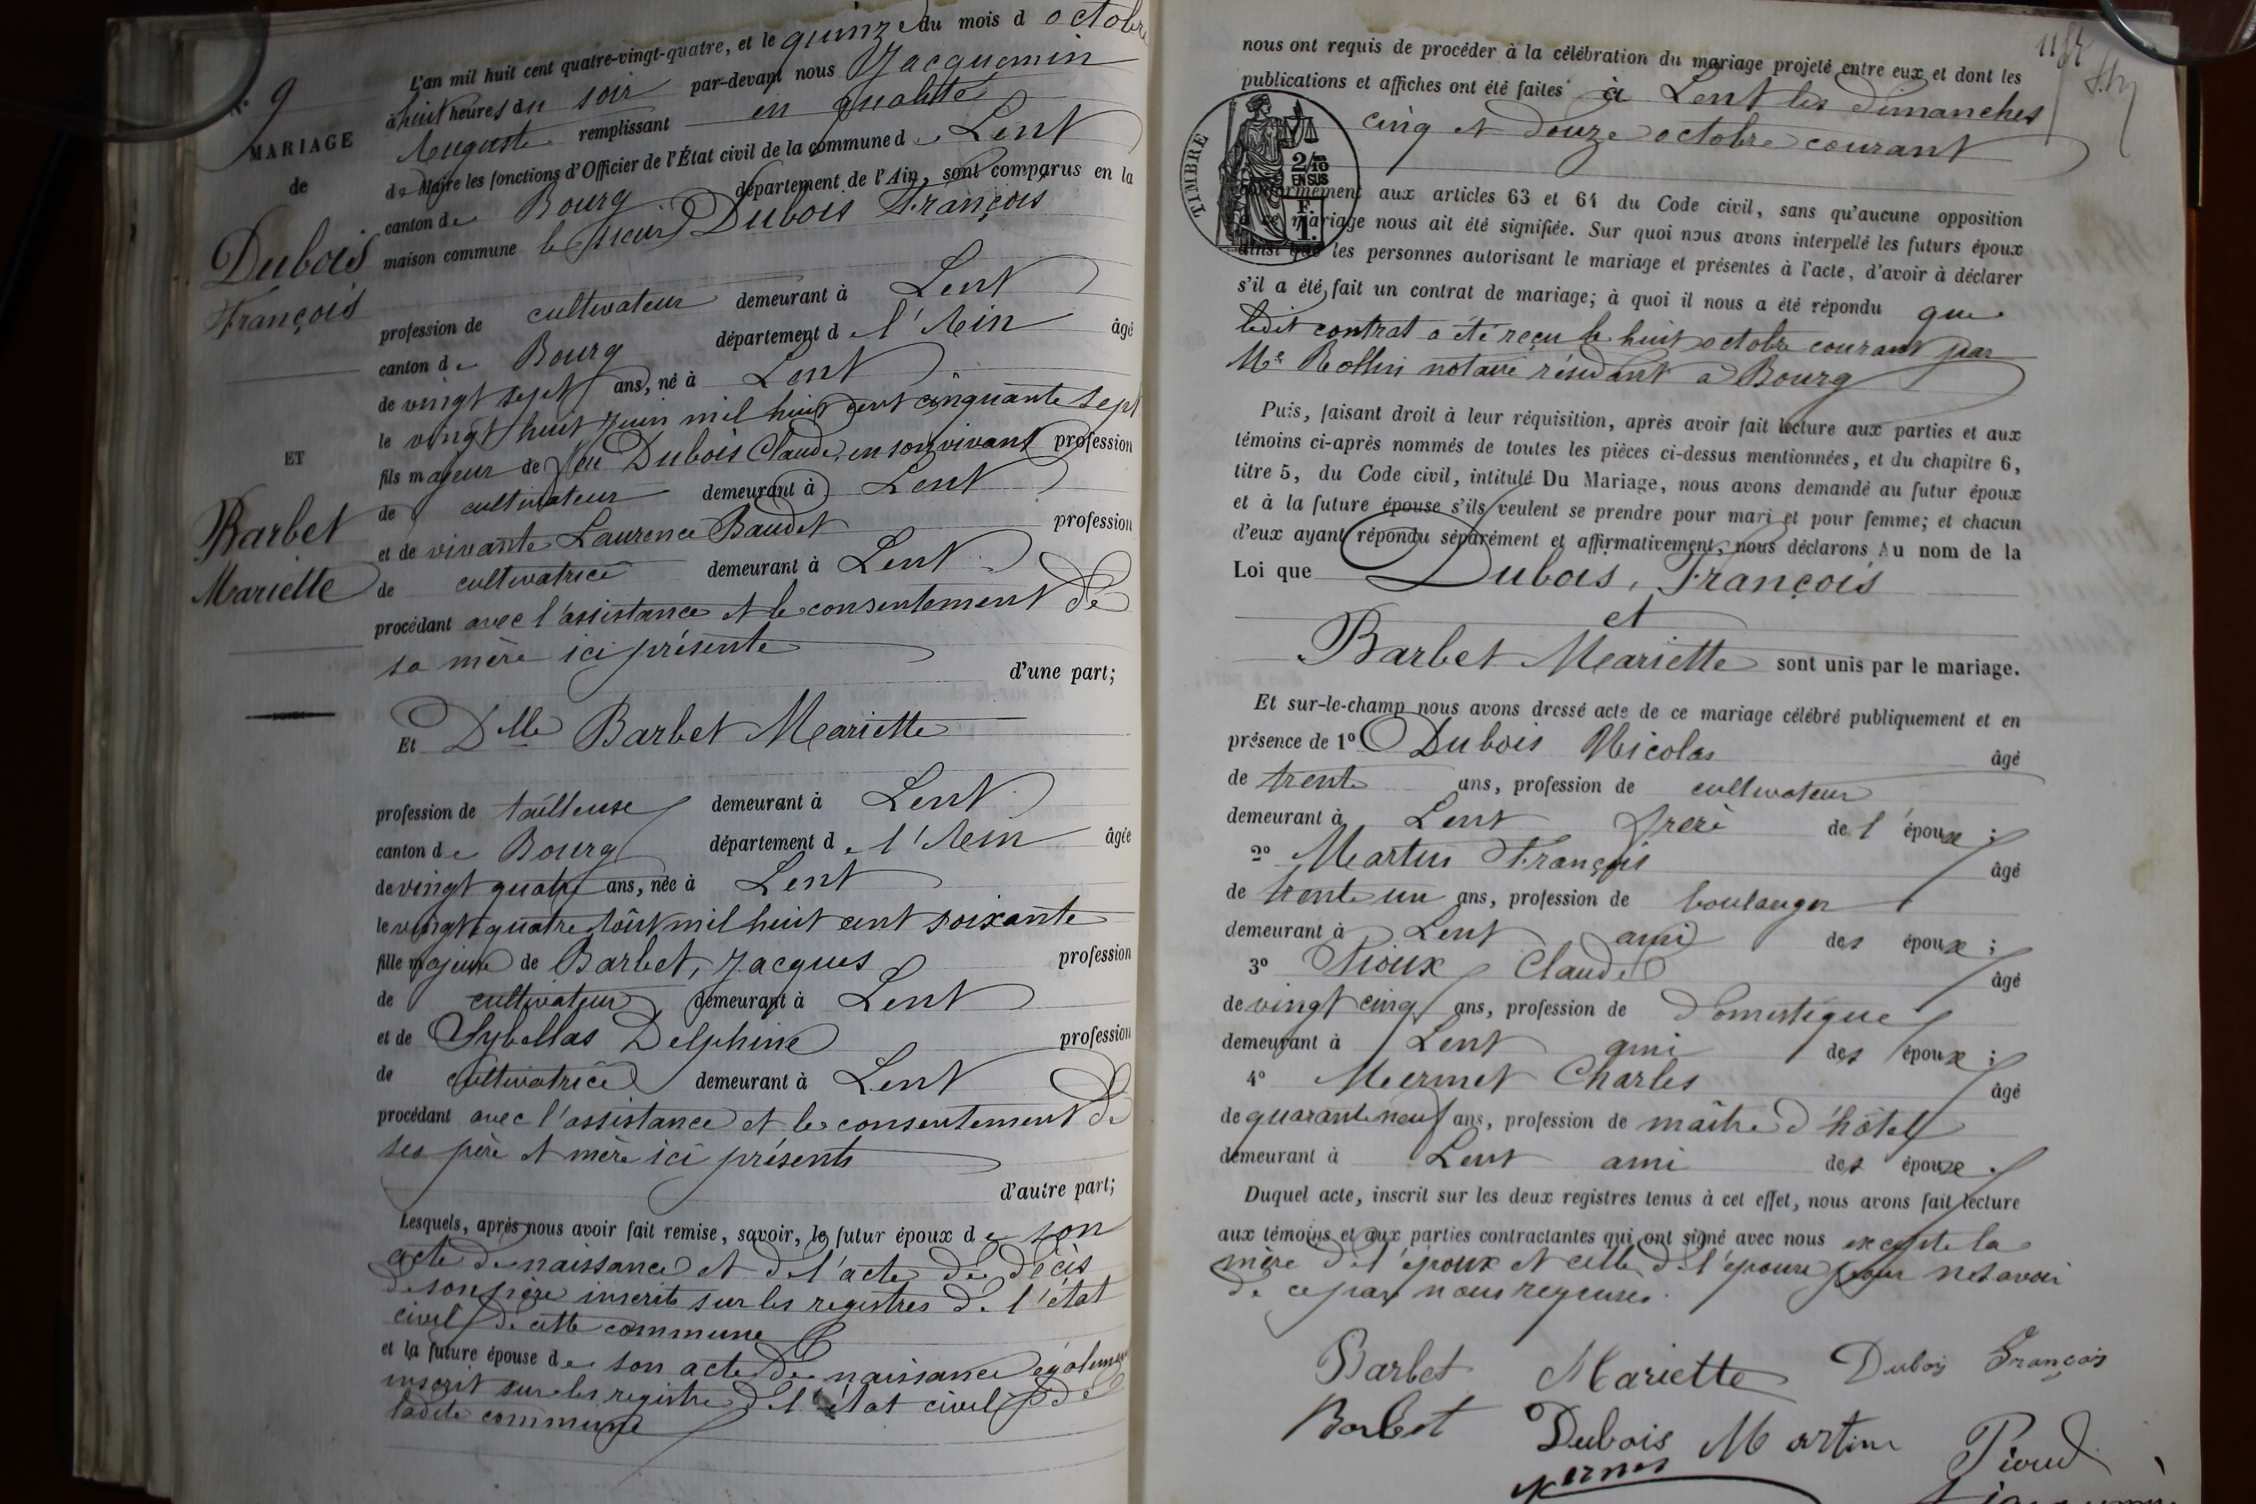 N° 9
MARIAGE
de
Dubois
François
ET
Barbet
Mariette
L'an mil huit cent quatre-vingt-quatre, et le quinze du mois d octobre
à huit heures du soir par-devant nous Jacquemin
Auguste remplissant en qualité
de Maire les fonctions d'Officier de l'État civil de la commune de Lent
canton de Bourg département de l'Ain, sont comparus en la
maison commune le sieur Dubois François
profession de cultivateur demeurant à Lent
canton de Bourg département d e l'Ain âgé
de vingt sept ans, né à Lent
le vingt huit juin mil huit cent cinquante sept
fils majeur de feu Dubois Claude, en son vivant profession
de cultivateur demeurant à Lent
et de vivante Laurence Baudet profession
de cultivatrice demeurant à Lent
procédant avec l'assistance et le consentement de
sa mère ici présente
d'une part;
Et Dlle Barbet Mariette
profession de tailleuse demeurant à Lent
canton de Bourg département d e l'Ain âgée
de vingt quatre ans, née à Lent
le vingt quatre août mil huit cent soixante
fille majeure de Barbet, Jacques profession
de cultivateur demeurant à Lent
et de Sybellas Delphine profession
de cultivatrice demeurant à Lent
procédant avec l'assistance et le consentement de
ses père et mère ici présents
d'autre part;
Lesquels, après nous avoir fait remise, savoir, le futur époux de son
acte de naissance et de l'acte de décès
de son père inscrits sur les registres de l'état
civil de cette commune
et la future épouse de son acte de naissance également
inscrit sur les registres de l'état civil de
ladite commune
nous ont requis de procéder à la célébration du mariage projeté entre eux et dont les
publications et affiches ont été faites à Lent les dimanches
cinq et douze octobre courant
TIMBRE
2/10
EN SUS
F.
1.
conformément aux articles 63 et 64 du Code civil, sans qu'aucune opposition
à ce mariage nous ait été signifiée. Sur quoi nous avons interpellé les futurs époux
ainsi que les personnes autorisant le mariage et présentes à l'acte, d'avoir à déclarer
s'il a été fait un contrat de mariage; à quoi il nous a été répondu que
ledit contrat a été reçu le huit octobre courant par
Me Rollin notaire résidant à Bourg
Puis, faisant droit à leur réquisition, après avoir fait lecture aux parties et aux
témoins ci-après nommés de toutes les pièces ci-dessus mentionnées, et du chapitre 6,
titre 5, du Code civil, intitulé Du Mariage, nous avons demandé au futur époux
et à la future épouse s'ils veulent se prendre pour mari et pour femme; et chacun
d'eux ayant répondu séparément et affirmativement, nous déclarons Au nom de la
Loi que Dubois, François
et
Barbet Mariette sont unis par le mariage.
Et sur-le-champ nous avons dressé acte de ce mariage célébré publiquement et en
présence de 1° Dubois Nicolas âgé
de trente ans, profession de cultivateur
demeurant à Lent frère de l'époux;
2° Martin François âgé
de trente un ans, profession de boulanger
demeurant à Lent ami des époux;
3° Pioux Claude âgé
de vingt cinq ans, profession de domestique
demeurant à Lent ami des époux;
4° Mermet Charles âgé
de quarante neuf ans, profession de maître d'hôtel
demeurant à Lent ami des époux.
Duquel acte, inscrit sur les deux registres tenus à cet effet, nous avons fait lecture
aux témoins et aux parties contractantes qui ont signé avec nous excepté la
mère de l'époux et celle de l'épouse pour ne savoir
de ce par nous requises.
Barbet Mariette Dubois François
Barbet Dubois Martin Pioud